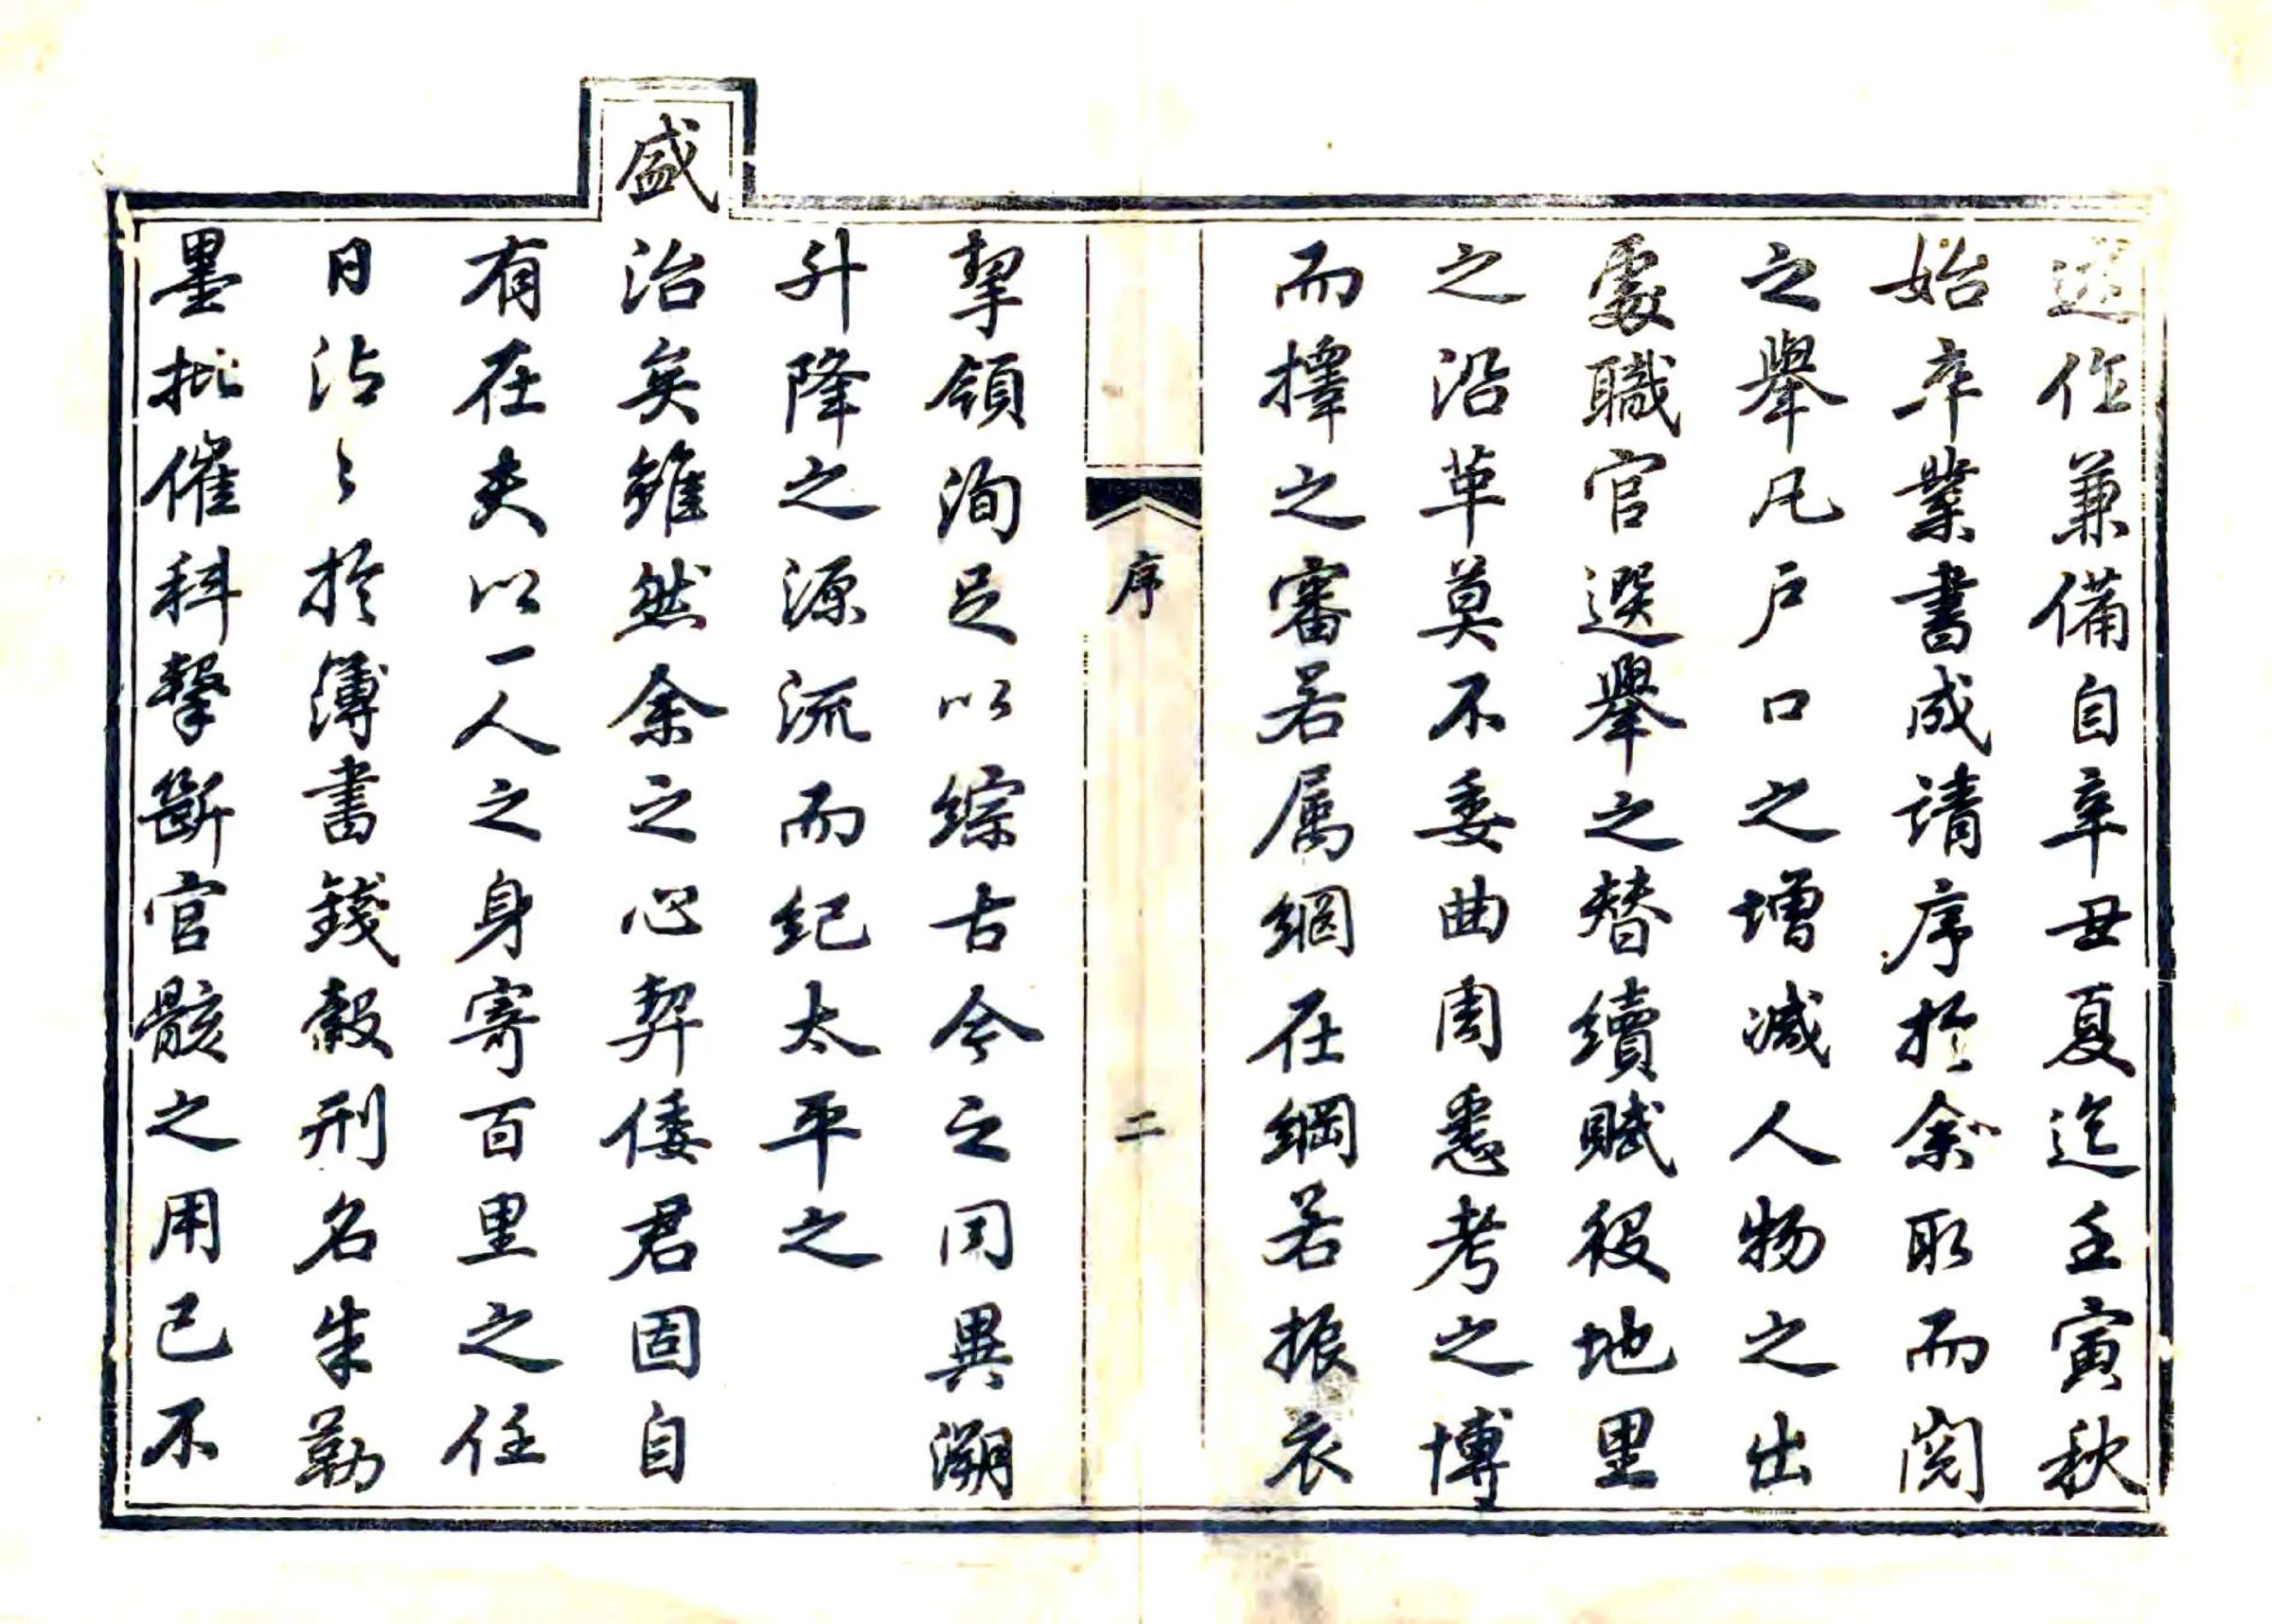 述作兼備自辛丑夏迄壬寅秋
始卒業書成請序於余取而閱
之舉凡戶口之增減人物之出
處職官選舉之替續賦役地里
之沿革莫不委曲周悉考之博
而擇之審若属網在綱若振衣
序
二
挈領洵足以綜古今之同異溯
升降之源流而紀太平之
盛治矣雖然余之心契倭君固自
有在夫以一人之身寄百里之任
日沾〻於簿書錢穀刑名朱勒
墨批催科掣斷官骸之用已不